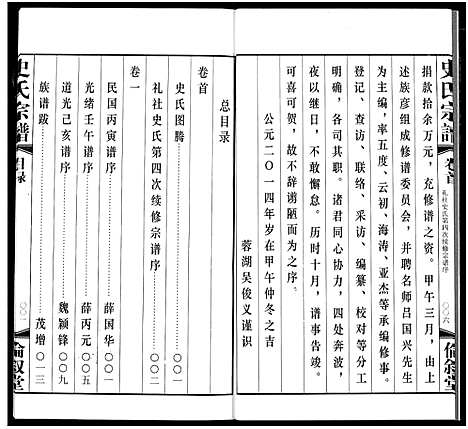 史氏宗譜
卷首
礼社史氏第四次续修宗谱序
〇〇六
倫叙堂
捐款拾余万元，充修谱之资。甲午三月，由上
述族彦组成修谱委员会，并聘名师吕国兴先生
为主编，率五度、云初、海涛、亚杰等承编修事。
登记、查访、联络、采访、编纂、校对等分工
明确，各司其职。诸君同心协力，四处奔波，
夜以继日，不敢懈怠。历时十月，谱事告竣。
可喜可贺，故不辞谫陋而为之序。
公元二〇一四年岁在甲午仲冬之吉
蓉湖吴俊义谨识
总目录
卷首
史氏图腾
礼社史氏第四次续修宗谱序……〇〇二
卷一
民国丙寅谱序……薛国华……〇〇一
光绪壬午谱序……薛丙元……〇〇五
道光己亥谱序……魏颖锋……〇〇九
族谱跋……茂增……〇一三
史氏宗譜
目録
〇〇一
倫叙堂